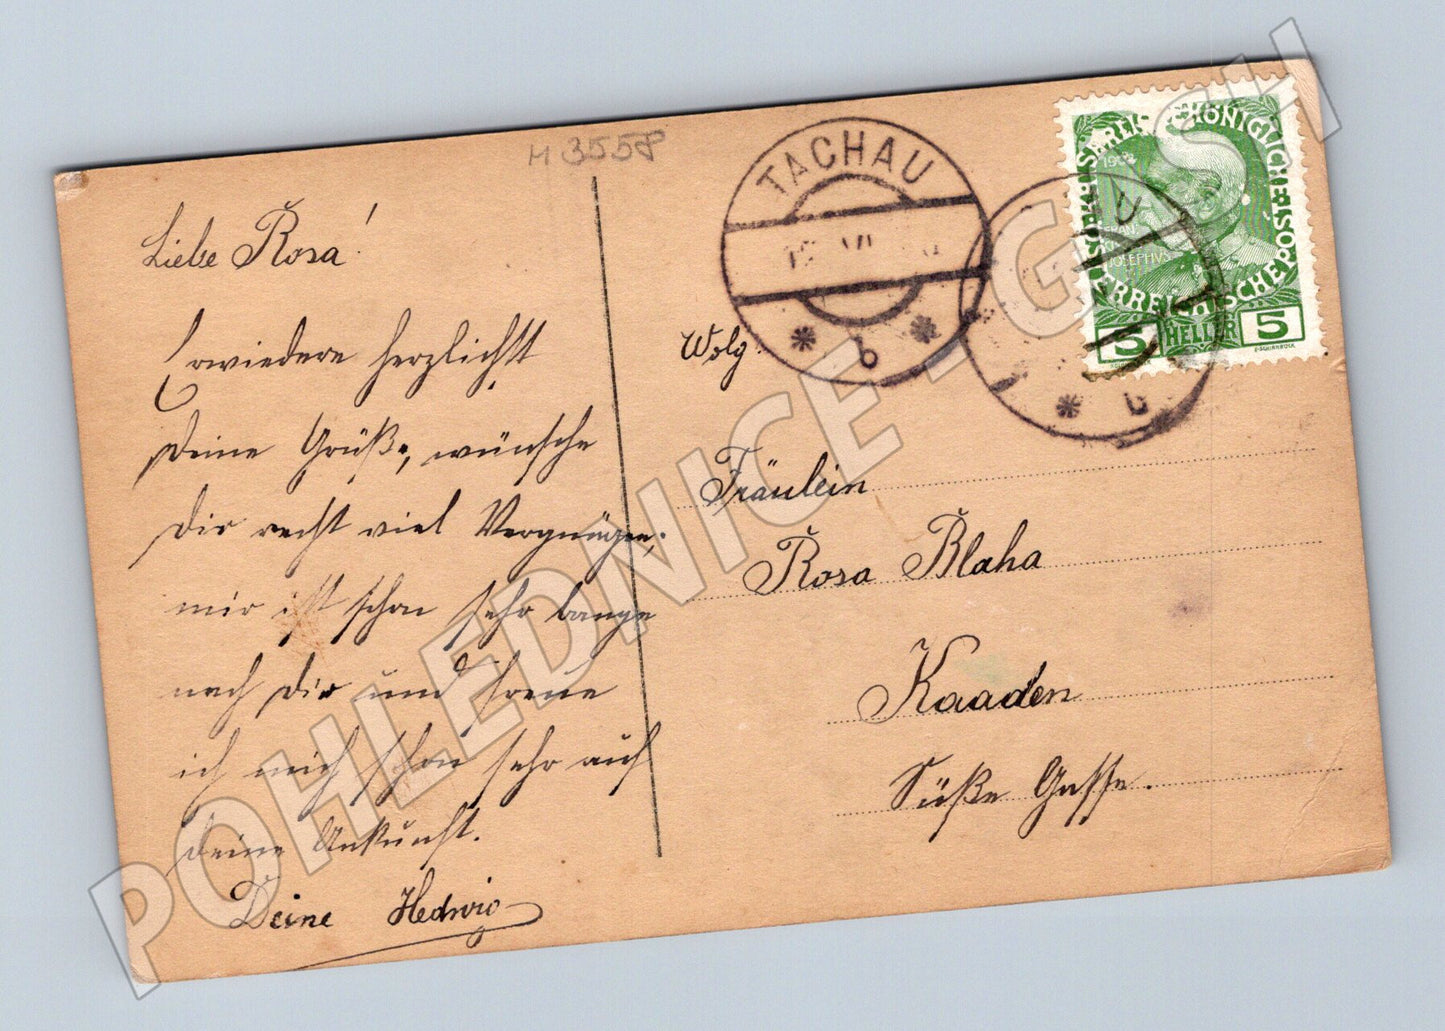 M 3558
Liebe Rosa!
Erwiedere herzlichst
Deine Grüße, wünsche
Dir recht viel Vergnügen,
mir ist schon sehr bange
nach Dir und freue
ich mich schon sehr auf
Deine Ankunft.
Deine Hedwig
TACHAU
VI
b
KAISERLICH KÖNIGLICHE
ÖSTERREICHISCHE POST
1908
FRAN
CIS
JOSEPHVS
5 HELLER 5
b
Wolg.
Fräulein
Rosa Blaha
Kaaden
Süße Gasse.
POHLEDNICE - GASH